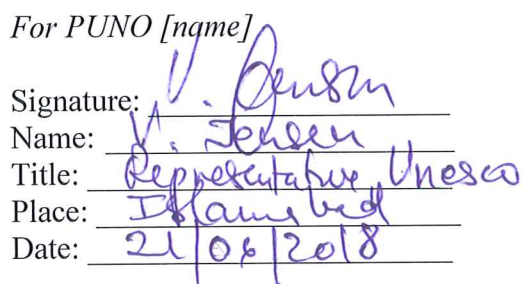 For PUNO [name]
Signature: V. Jensen
Name: V. Jensen
Title: Representative Unesco
Place: Islamabad
Date: 21/06/2018